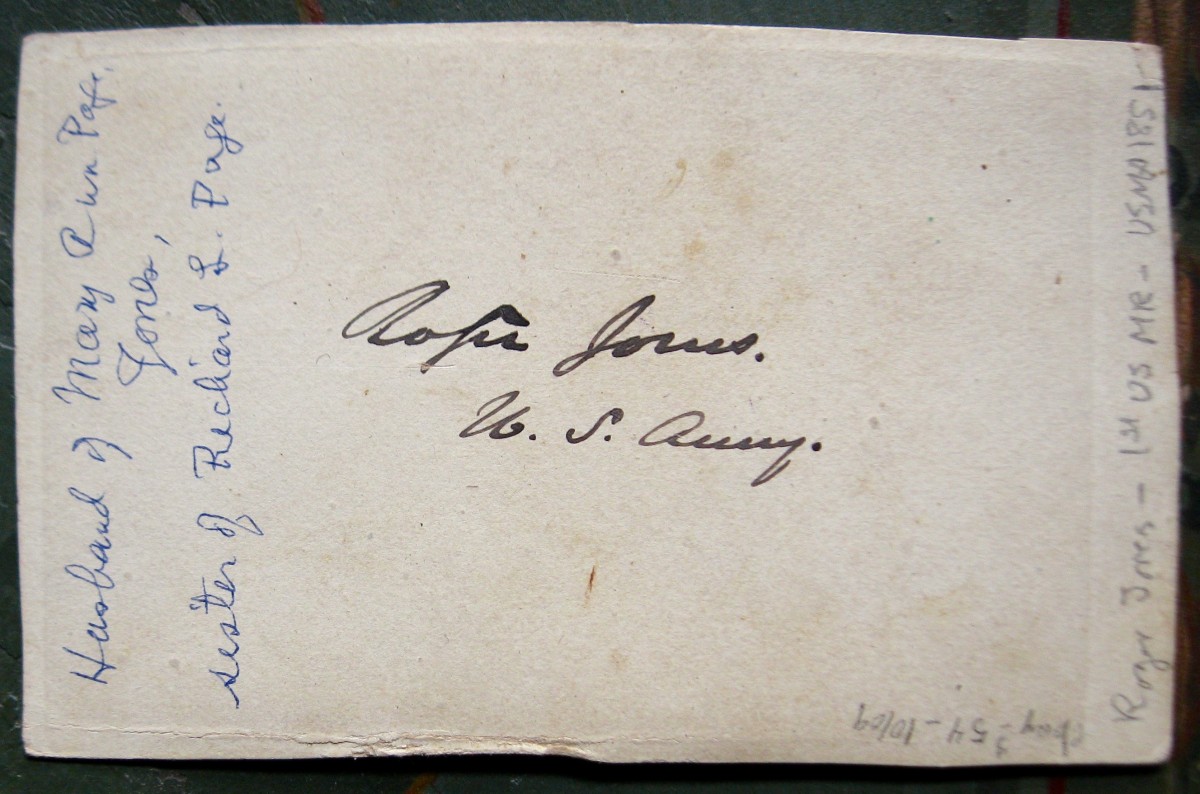 Husband of Mary Ann Page
Jones,
sister of Richard L. Page.
Roger Jones.
U. S. Army.
Roger Jones - 1st US MR - USMA 1851 -
ebay $54 - 10/09